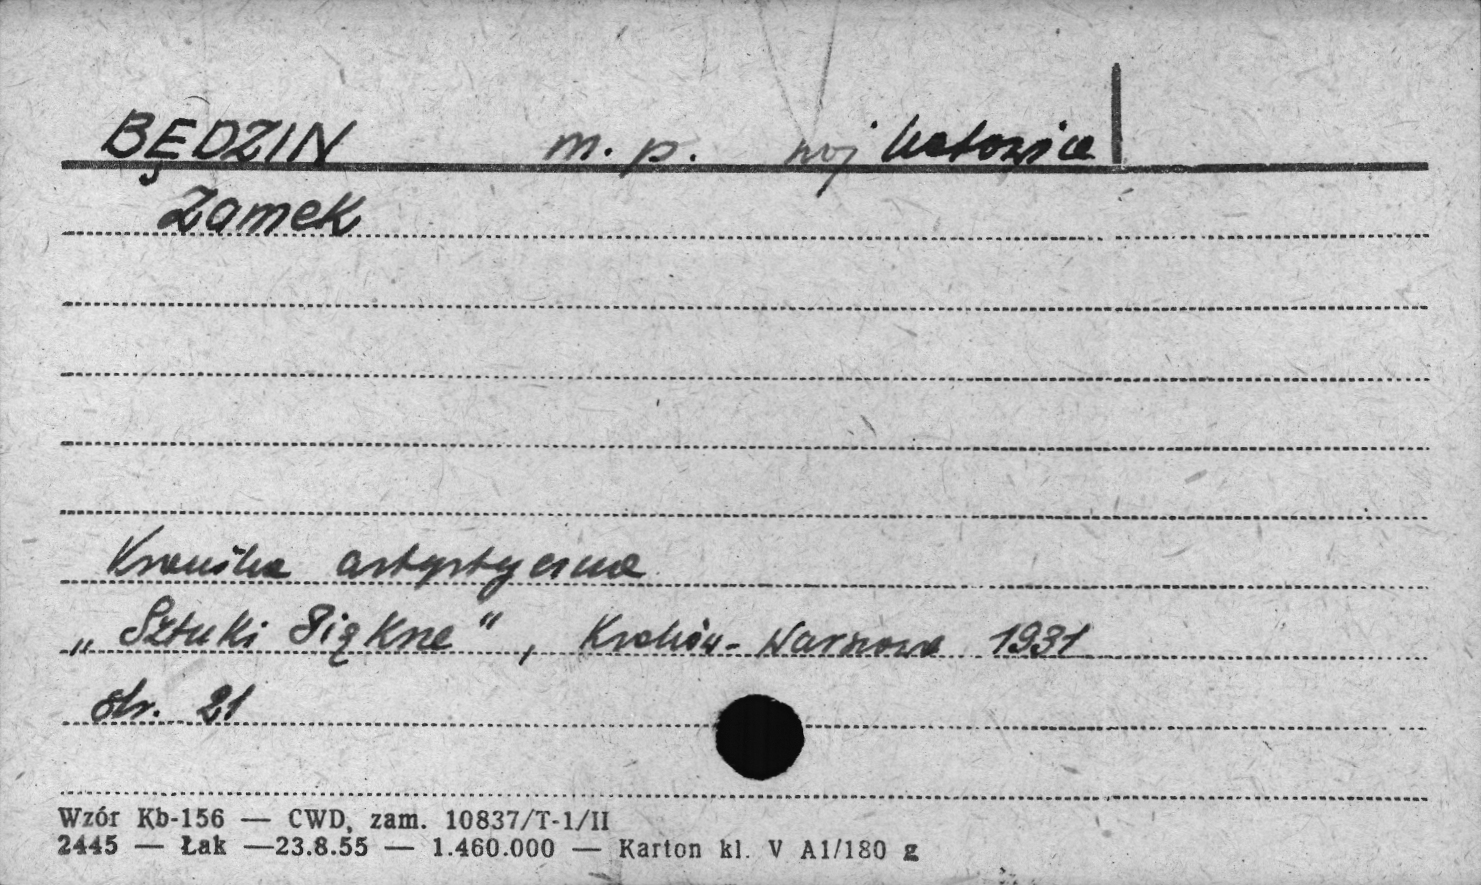 BĘDZIN m. p. woj Katowice
Zamek
Kronika artystyczna
„Sztuki Piękne", Kraków-Warszawa 1931
str. 21
Wzór Kb-156 — CWD, zam. 10837/T-1/II
2445 — Łak —23.8.55 — 1.460.000 — Karton kl. V A1/180 g